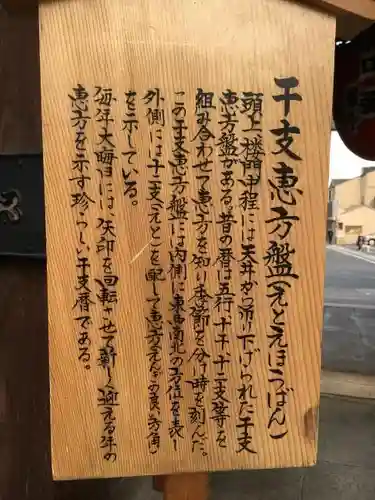 干支恵方盤(えとえほうばん)
頭上、楼門中程には天井から吊り下げられた干支
恵方盤がある。昔の暦は五行、十干、十二支等を
組み合わせて恵方を知り季節を分け時を刻んだ。
この干支恵方盤には内側に東西南北の方位を表し
外側には十二支(えと)を配して恵方(えほう・その年の良い方角)
を示している。
毎年大晦日には、矢印を回転させて新しく迎える年の
恵方を示す珍らしい干支暦である。